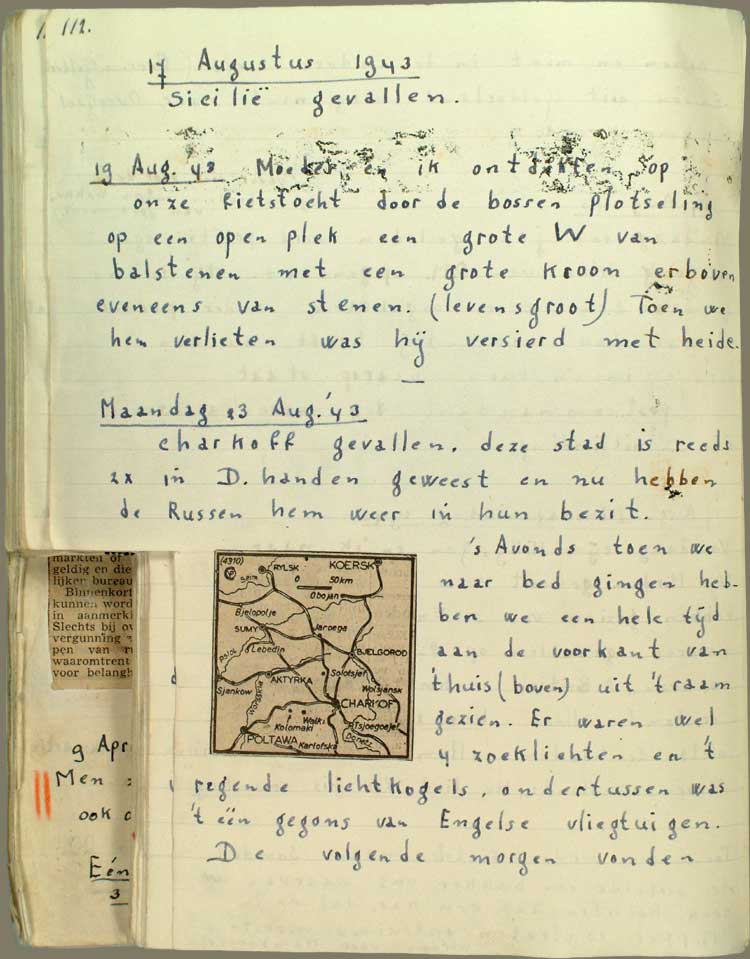 112.
17 Augustus 1943
Sicilië gevallen.
19 Aug. '43 Moeder en ik ontdekten op
onze fietstocht door de bossen plotseling
op een open plek een grote W van
balstenen met een grote kroon erboven
eveneens van stenen. (levensgroot) Toen we
hem verlieten was hij versierd met heide.
—
Maandag 23 Aug. '43
Charkoff gevallen. deze stad is reeds
2x in D. handen geweest en nu hebben
de Russen hem weer in hun bezit.
's Avonds toen we
naar bed gingen heb-
ben we een hele tijd
aan de voorkant van
't huis (boven) uit 't raam
gezien. Er waren wel
4 zoeklichten en 't
regende lichtkogels, ondertussen was
't één gegons van Engelse vliegtuigen.
De volgende morgen vonden
(4310)
RYLSK
KOERSK
0 50km
Obojan
Bjelopolje
SUMY
Jaroega
Lebedin
BJELGOROD
AKTYRKA
Solotsjef
Sjenkow
Woltsjansk
CHARKOF
Walki
Kolomaki
Tsjoegoejef
POLTAWA
Karlofska
Donets
markten of
geldig en die
lijker bureau
Binnenkort
kunnen word
in aanmerki
Slechts bij ov
vergunning
pen van
waaromtrent
voor belangh
9 Apr
Men
ook
Eén
3